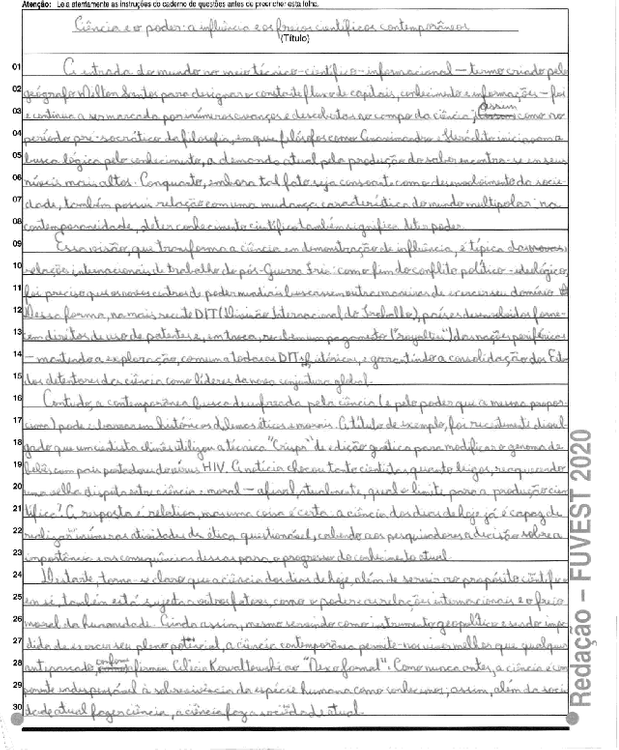 Atenção: Leia atentamente as instruções do caderno de questões antes de preencher esta folha.
Ciência e o poder: a influência e os freios científicos contemporâneos
(Título)
01 A entrada do mundo no meio técnico-científico-informacional – termo criado pelo
02 geógrafo Milton Santos para designar o constante fluxo de capitais, conhecimento e informações – foi
03 e continua a ser marcada por inúmeros avanços e descobertas no campo da ciência; assim como no
04 período pré-socrático da filosofia, em que filósofos como Anaximandro e Heráclito iniciaram a
05 busca lógica pelo conhecimento, a demanda atual pela produção do saber encontra-se em seus
06 níveis mais altos. Conquanto, embora tal fato seja consoante com o desenvolvimento da socie
07 dade, também possui relação com uma mudança característica do mundo multipolar: na
08 contemporaneidade, deter conhecimento científico também significa deter poder.
09 Essa visão, que transforma a ciência em demonstração de influência, é típica das novas
10 relações internacionais de trabalho do pós-Guerra Fria: com o fim do conflito político-ideológico,
11 foi preciso que os novos centros de poder mundiais buscassem outra maneira de exercer seu domínio.
12 Dessa forma, na mais recente DIT (Divisão Internacional do Trabalho), países desenvolvidos forne
13 cem direitos de uso de patentes e, em troca, recebem um pagamento ("royalties") das nações periféricas
14 – mantendo a exploração, comum a todas as DITs históricas, e garantindo a consolidação dos Esta
15 dos detentores da ciência como líderes da nova conjuntura global.
16 Contudo, a contemporânea busca desenfreada pela ciência (e pelo poder que a mesma propor
17 ciona) pode esbarrar em históricos dilemas éticos e morais. A título de exemplo, foi recentemente divul
18 gado que um cientista chinês utilizou a técnica "Crispr" de edição genética para modificar o genoma de
19 bebês com pais portadores do vírus HIV. A notícia chocou tanto cientistas quanto leigos, reaquecendo
20 uma velha disputa entre ciência e moral – afinal, atualmente, qual o limite para a produção cien
21 tífica? A resposta é relativa, mas uma coisa é certa: a ciência dos dias de hoje já é capaz de
22 realizar inúmeras atividades de ética questionável, cabendo aos pesquisadores a decisão sobre a
23 importância e as consequências dessas para o progresso do conhecimento atual.
24 Destarte, torna-se claro que a ciência dos dias de hoje, além de servir ao propósito científico
25 em si, também está sujeita a outros fatores como o poder e as relações internacionais e o freio
26 moral da humanidade. Ainda assim, mesmo servindo como instrumento geopolítico e sendo impe
27 dida de exercer seu pleno potencial, a ciência contemporânea permite-nos viver melhor que qualquer
28 antepassado, conforme firmou Clície Kowaltowski ao "Nexo Jornal". Como nunca antes, a ciência é com
29 ponente indispensável à sobrevivência da espécie humana como conhecemos; assim, além da socie
30 dade atual fazer ciência, a ciência faz a sociedade atual.
Redação – FUVEST 2020